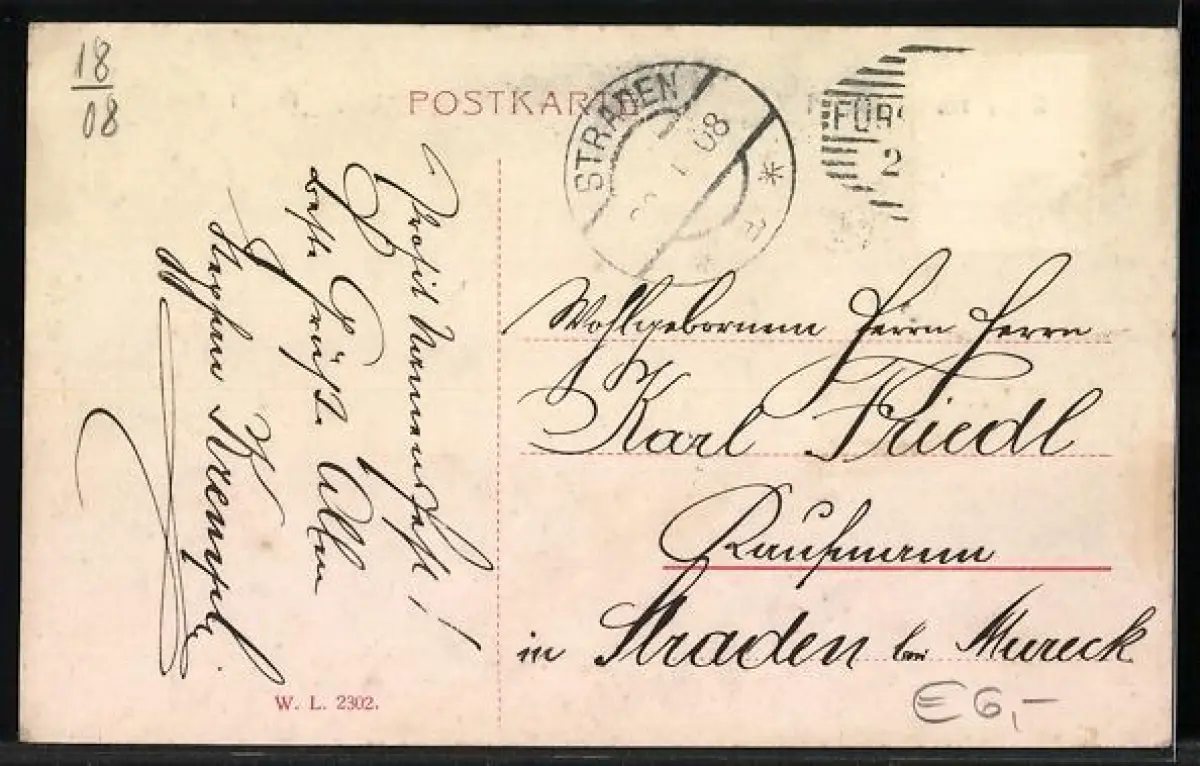 18
08
POSTKARTE
STRADEN
1 08
FÜR
2
Prosit Namensfest!
Beste Grüße Allen
Stephan Krempl
Wohlgebornenen Herrn Herrn
Karl Friedl
Kaufmann
in Straden bei Mureck
W. L. 2302.
€6,-